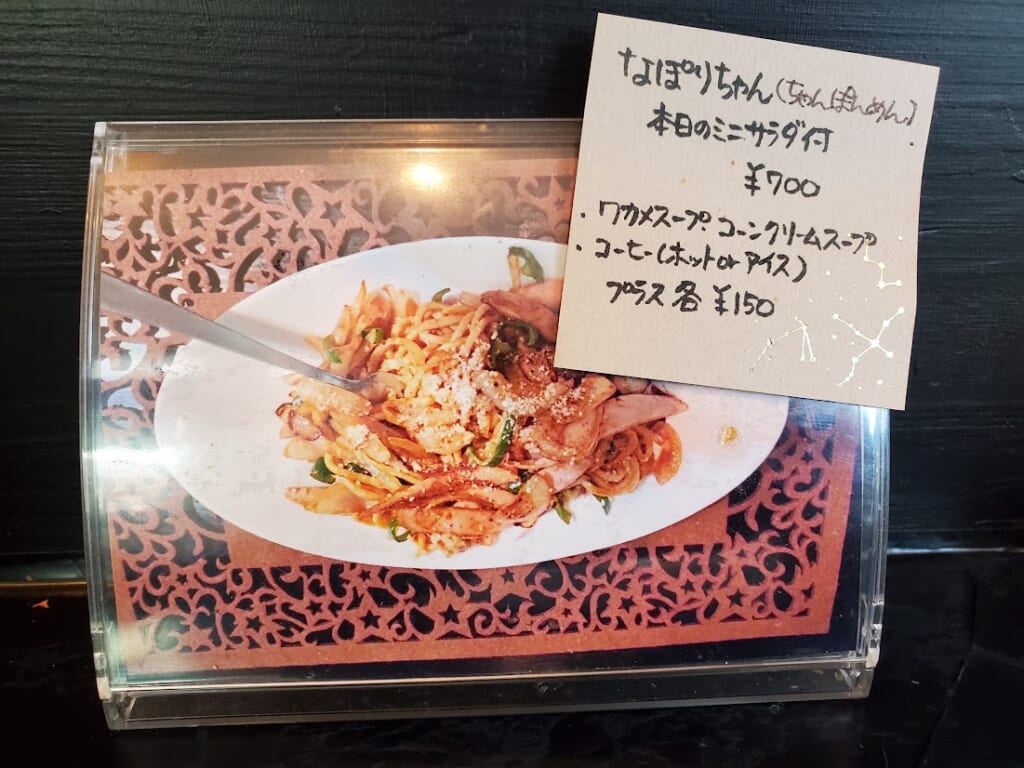 なぽりちゃん(ちゃんぽんめん)
本日のミニサラダ付
¥700
・ワカメスープ・コーンクリームスープ
・コーヒー(ホットorアイス)
プラス各¥150